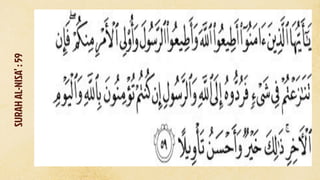 SURAH AL-NISA' : 59
يَٰٓأَيُّهَا ٱلَّذِينَ ءَامَنُوٓا۟ أَطِيعُوا۟ ٱللَّهَ وَأَطِيعُوا۟ ٱلرَّسُولَ وَأُو۟لِى ٱلْأَمْرِ مِنكُمْ ۖ فَإِن
تَنَٰزَعْتُمْ فِى شَىْءٍ فَرُدُّوهُ إِلَى ٱللَّهِ وَٱلرَّسُولِ إِن كُنتُمْ تُؤْمِنُونَ بِٱللَّهِ وَٱلْيَوْمِ
ٱلْءَاخِرِ ۚ ذَٰلِكَ خَيْرٌ وَأَحْسَنُ تَأْوِيلًا ﴿٥٩﴾